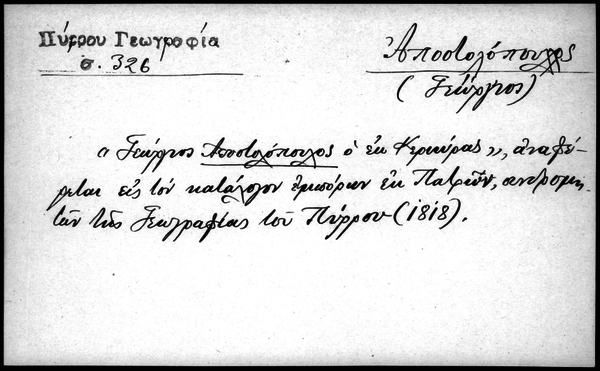 Πύρρου Γεωγραφία
σ. 326
Ἀποστολόπουλος
(Γεώργιος)
« Γεώργιος Ἀποστολόπουλος ὁ ἐκ Κερκύρας », ἀναφέ-
ρεται εἰς τὸν κατάλογον ἐμπόρων ἐκ Πατρῶν, συνδρομη-
τῶν τῆς Γεωγραφίας τοῦ Πύρρου (1818).